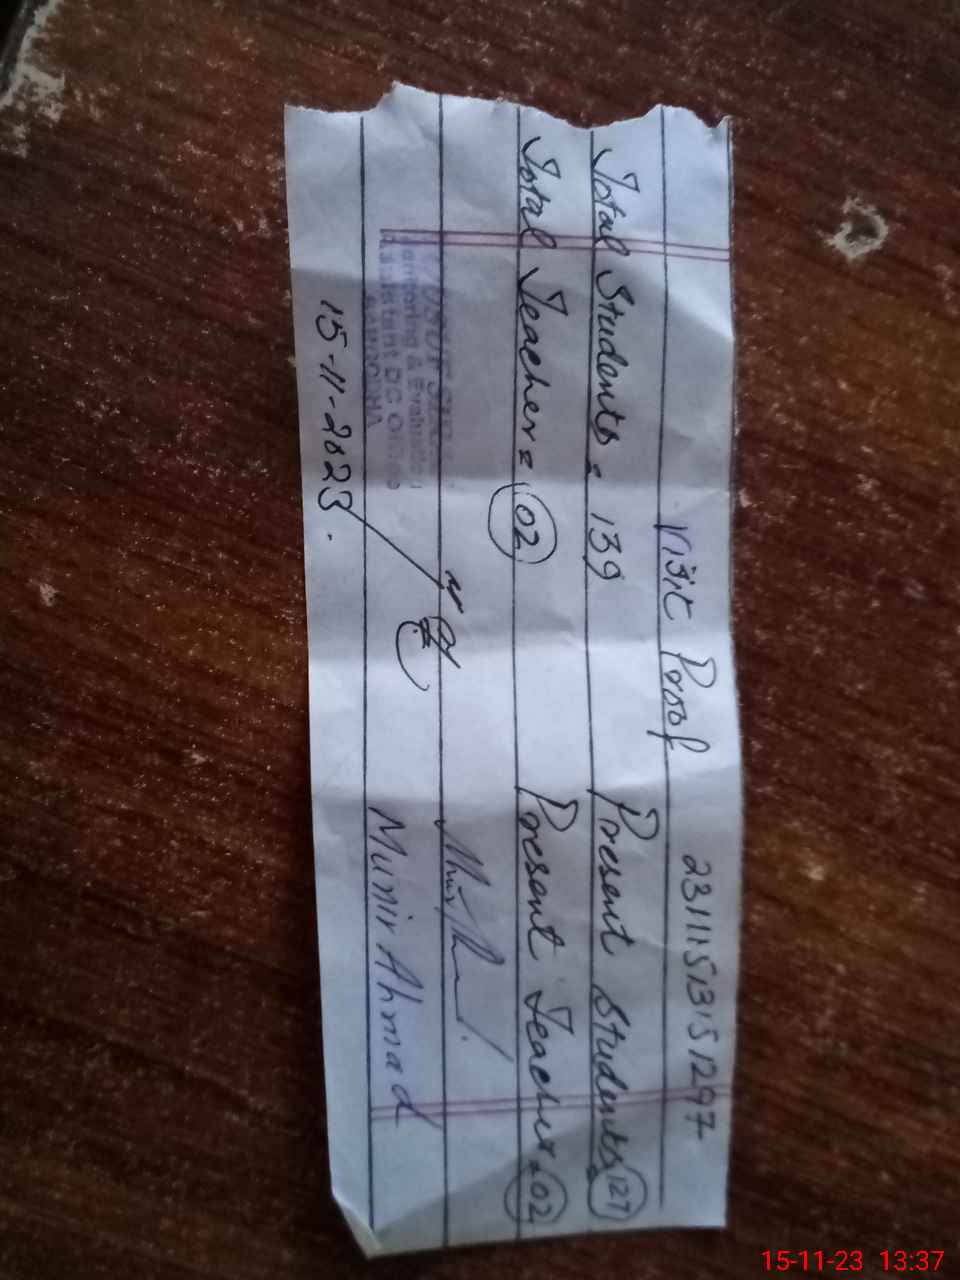 Visit Proof 2311151315 1297
Total Students = 139 Present Students = 127
Total Teacher = 02 Present Teacher = 02
Monitoring & Evaluation
Assistant DC Office
SARGODHA
Munir Ahmad
15-11-2023.
15-11-23 13:37